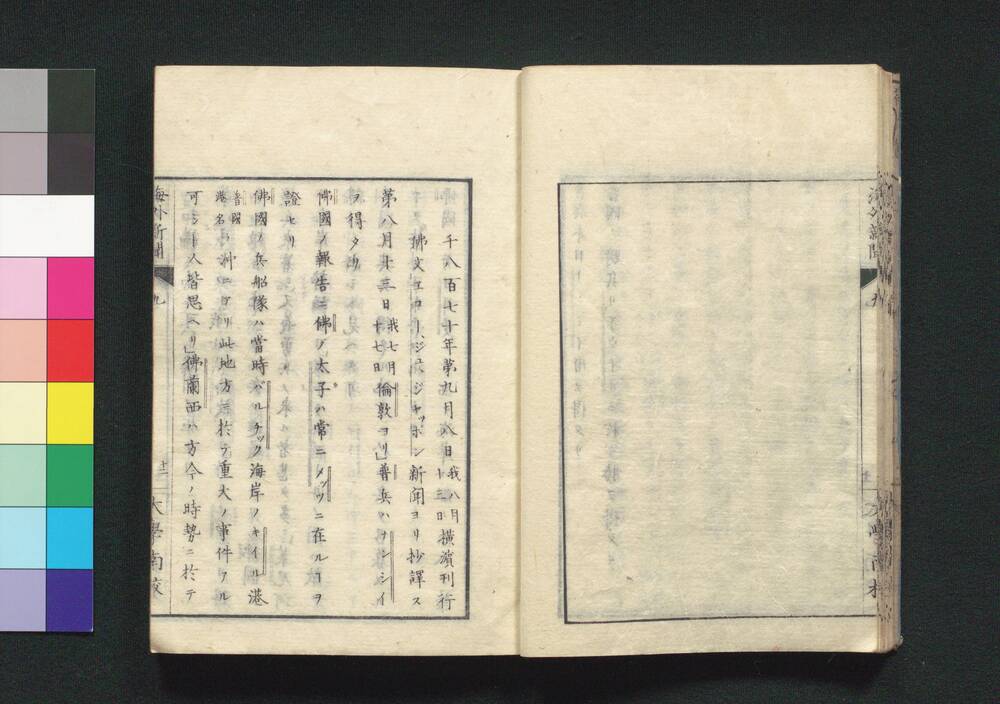 千八百七十年第九月八日我八月十三日横濱刊行
佛文エコージュジャッポン新聞ヨリ抄譯ス
第八月廿三日我七月廿七日倫敦ヨリ」普兵ハナンシイ
ヲ得タリ
佛國ノ報告ニ佛ノ太子ハ常ニメッツニ在ルコヲ
證セリ
佛國ノ兵船隊ハ當時バルチック海岸ノキイル港
普國港名ニ在リ此地方ニ於テ重大ノ事件アル
可シト人皆思ヘリ」佛蘭西ハ方今ノ時勢ニ於テ
海外新聞 九 十二 大學南校